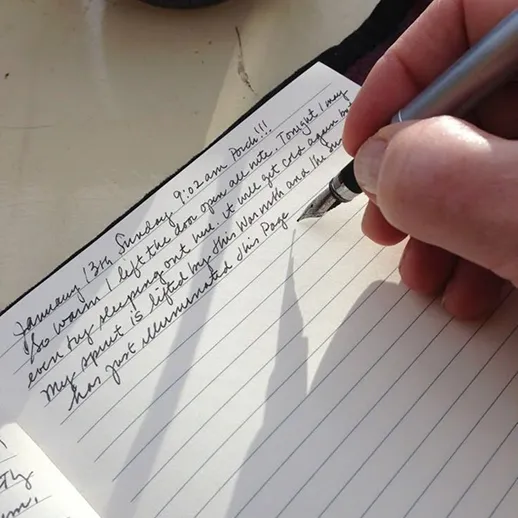 January 13th Sunday 9:02am Porch!!!
So warm I left the door open all nite. Tonight I may
even try sleeping out here. It will get cold again but
My spirit is lifted by this Warmth and the Sun
has just illuminated this Page